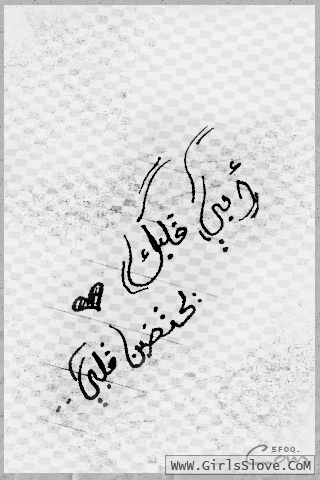 أبي قلبك
يحتضن قلبي
5FOQ.
www.GirlsSlove.com